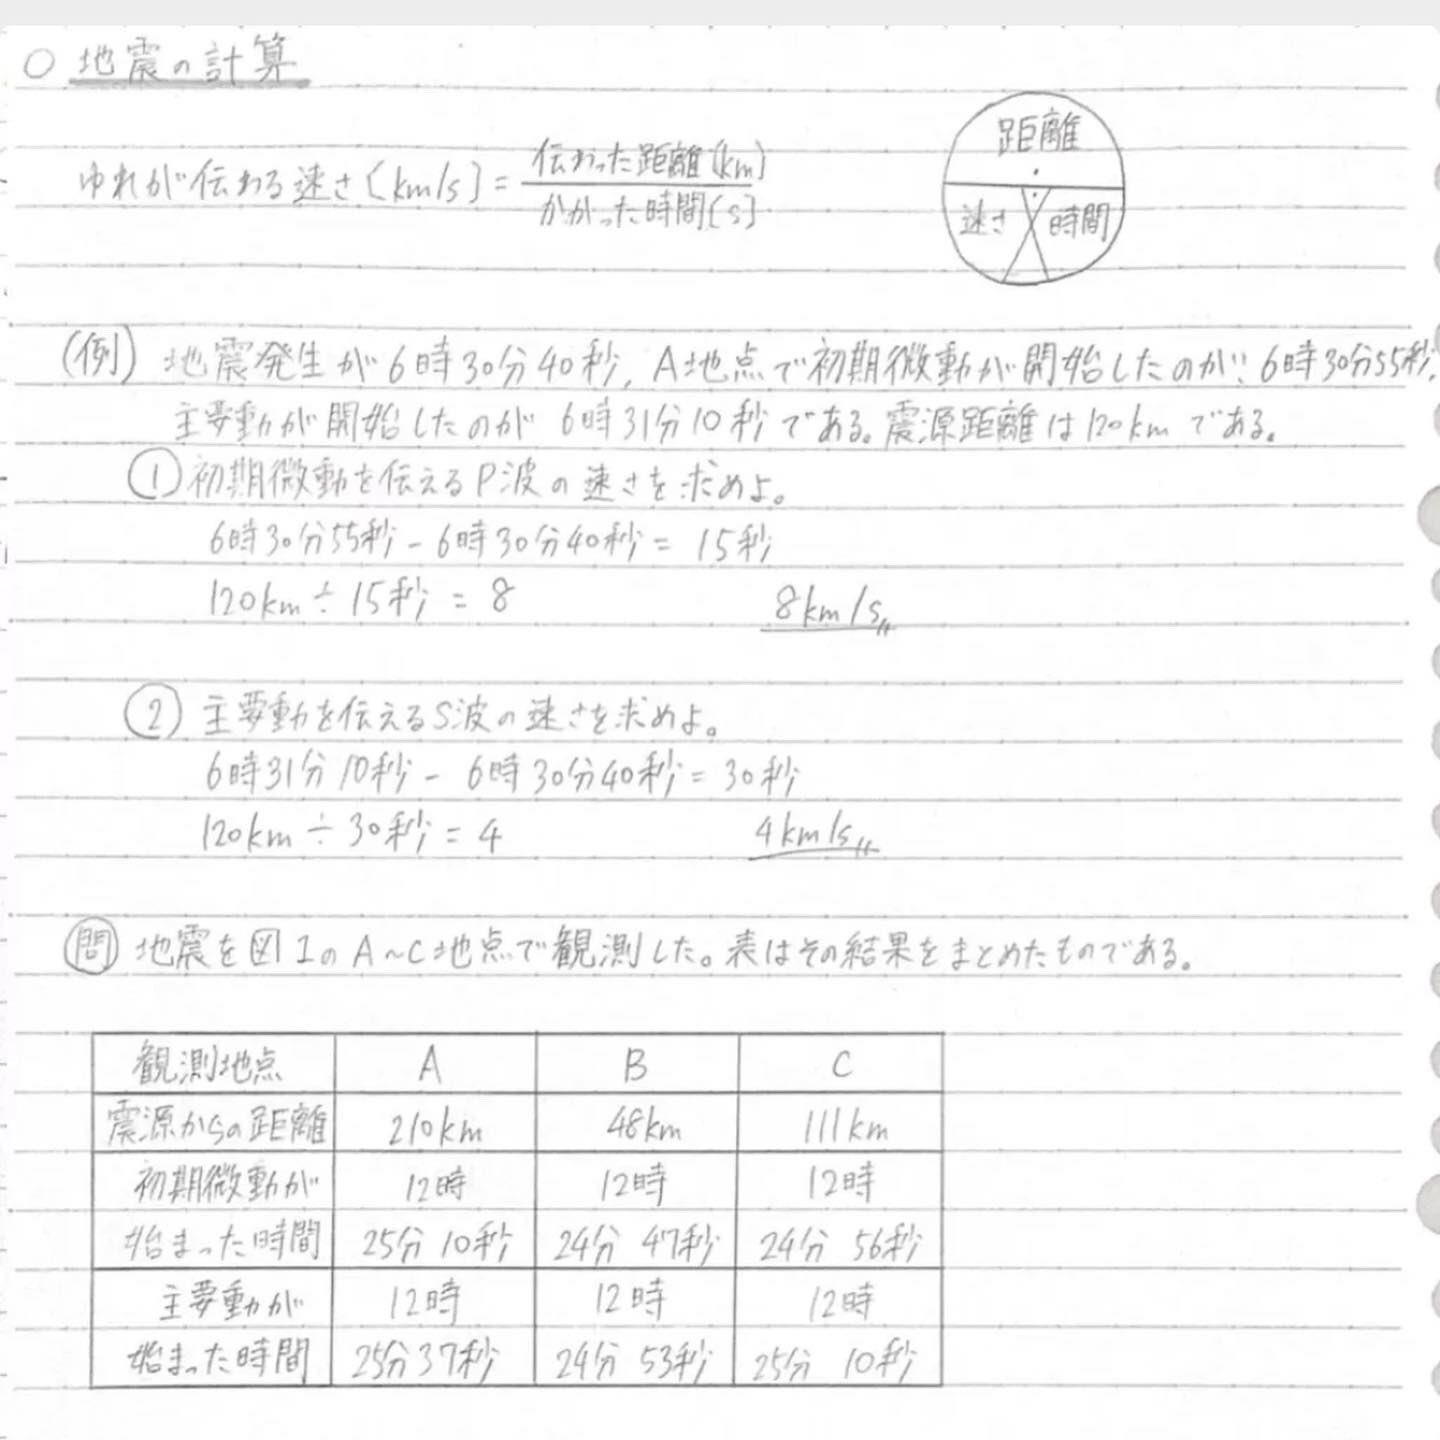 ○ 地震の計算
ゆれが伝わる速さ〔km/s〕= 伝わった距離〔km〕
かかった時間〔s〕
距離
速さ 時間
(例) 地震発生が6時30分40秒, A地点で初期微動が開始したのが 6時30分55秒,
主要動が開始したのが 6時31分10秒である。震源距離は120kmである。
① 初期微動を伝えるP波の速さを求めよ。
6時30分55秒 - 6時30分40秒 = 15秒
120km ÷ 15秒 = 8 8km/s
② 主要動を伝えるS波の速さを求めよ。
6時31分10秒 - 6時30分40秒 = 30秒
120km ÷ 30秒 = 4 4km/s
問 地震を図1のA~C地点で観測した。表はその結果をまとめたものである。
観測地点 A B C
震源からの距離 210km 48km 111km
初期微動が 12時 12時 12時
始まった時間 25分10秒 24分 47秒 24分 56秒
主要動が 12時 12時 12時
始まった時間 25分37秒 24分 53秒 25分 10秒